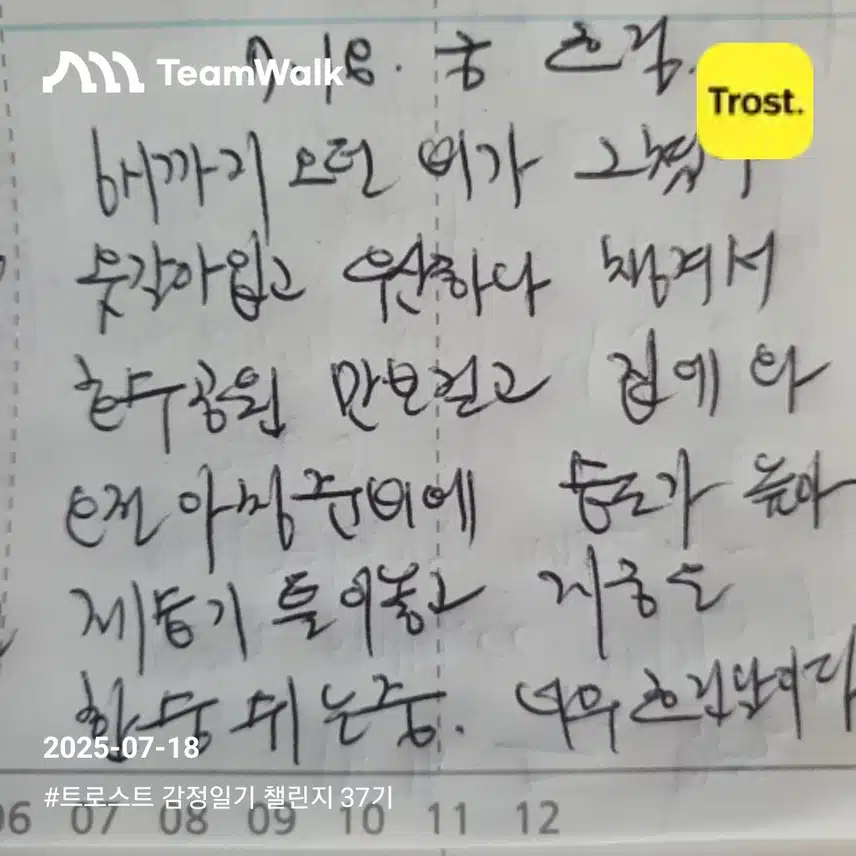 TeamWalk
7.18. 금 흐림.
Trost.
해까지 오던 비가 그쳤
옷갈아입고 우산하나 챙겨서
호수공원 만보걷고 집에 와
오전 아침준비에 습도가 높아
제습기 틀어놓고 지금은
한숨 쉬는중. 너무 흐린날이다
2025-07-18
#트로스트 감정일기 챌린지 37기
06 07 08 09 10 11 12